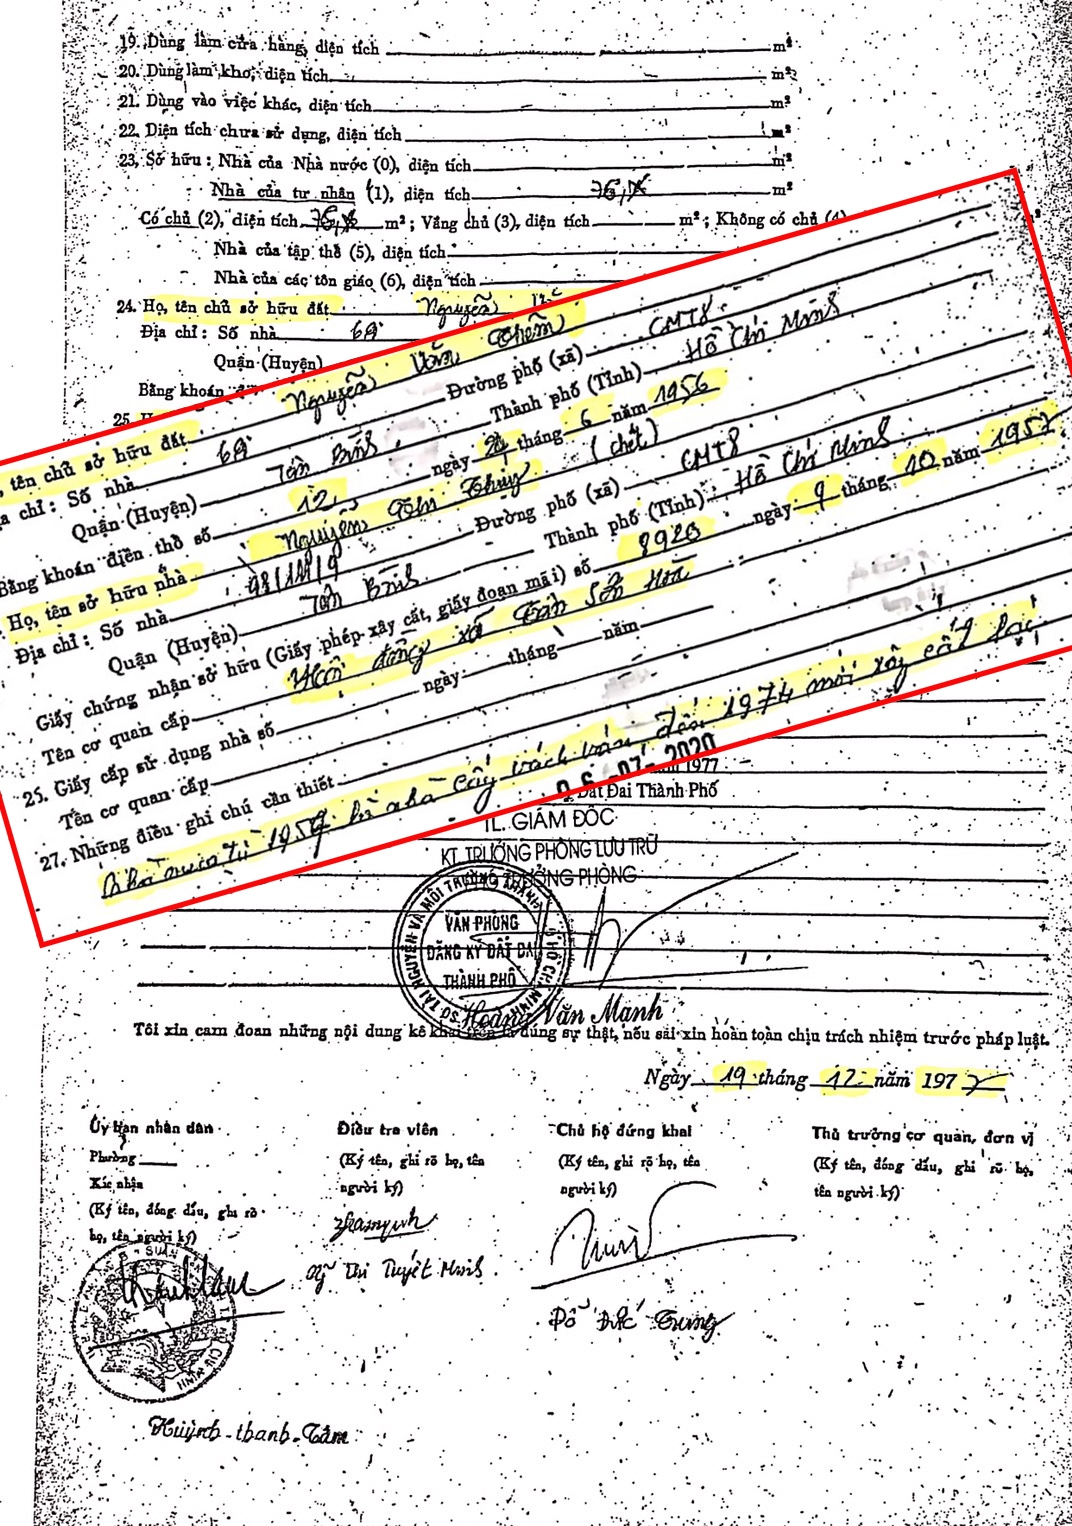 19. Dùng làm cửa hàng, diện tích m²
20. Dùng làm kho, diện tích m²
21. Dùng vào việc khác, diện tích m²
22. Diện tích chưa sử dụng, diện tích m²
23. Sở hữu : Nhà của Nhà nước (0), diện tích m²
Nhà của tư nhân (1), diện tích m²
Có chủ (2), diện tích m² ; Vắng chủ (3), diện tích m² ; Không có chủ (4)
Nhà của tập thể (5), diện tích
Nhà của các tôn giáo (6), diện tích
24. Họ, tên chủ sở hữu đất Nguyễn
Địa chỉ : Số nhà 69
Quận (Huyện)
Bằng khoán
25.
tên chủ sở hữu đất Nguyễn Văn Thêm
chỉ : Số nhà 69 Đường phố (xã) CMT8
Quận (Huyện) Tân Bình Thành phố (Tỉnh) Hồ Chí Minh
Bằng khoán điền thổ số 12 ngày 24 tháng 6 năm 1956
Họ, tên sở hữu nhà Nguyễn Thị Thủy (chết)
Địa chỉ : Số nhà Đường phố (xã) CMT8
Quận (Huyện) Tân Bình Thành phố (Tỉnh) Hồ Chí Minh
Giấy chứng nhận sở hữu (Giấy phép xây cất, giấy đoạn mãi) số 8923 ngày 9 tháng 10 năm 1957
Tên cơ quan cấp Hội đồng xã Tân Sơn Hòa
25. Giấy cấp sử dụng nhà số ngày tháng năm
Tên cơ quan cấp
27. Những điều ghi chú cần thiết
Nhà mua từ 1957 là nhà cây vách ván đến 1974 mới xây cất lại
07- 2020
1977
Đất Đai Thành Phố
TL. GIÁM ĐỐC
KT. TRƯỞNG PHÒNG LƯU TRỮ
TRƯỞNG PHÒNG
SỞ TÀI NGUYÊN VÀ MÔI TRƯỜNG THÀNH PHỐ HỒ CHÍ MINH
VĂN PHÒNG
ĐĂNG KÝ ĐẤT ĐAI
THÀNH PHỐ
Hoàng Văn Mạnh
Tôi xin cam đoan những nội dung kê khai trên là đúng sự thật, nếu sai xin hoàn toàn chịu trách nhiệm trước pháp luật.
Ngày 19 tháng 12 năm 1977
Ủy ban nhân dân Điều tra viên Chủ hộ đứng khai Thủ trưởng cơ quan, đơn vị
Phường (Ký tên, ghi rõ họ, tên (Ký tên, ghi rõ họ, tên (Ký tên, đóng dấu, ghi rõ họ,
Xác nhận người ký) người ký) tên người ký)
(Ký tên, đóng dấu, ghi rõ
họ, tên người ký)
Thị Tuyết Minh
Đỗ Đức Trung
Huỳnh-thanh-Tâm